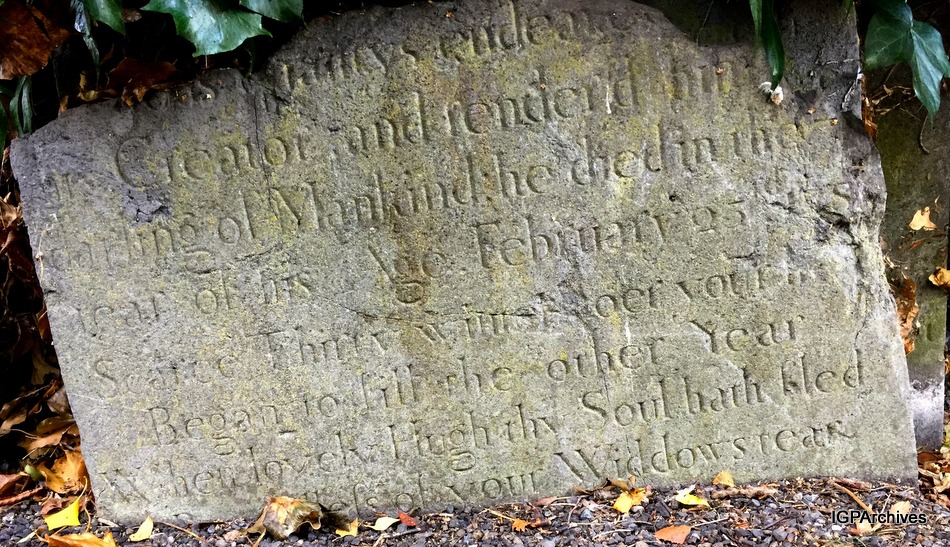 endear
Creator and render'd him
darling of Mankind, he died in the
Year of his Age February 25
Scarce Thirty winters o'er your
Began to fill the other Year
When lovely Hugh thy Soul hath fled
of your Widdows tear
IGPArchives